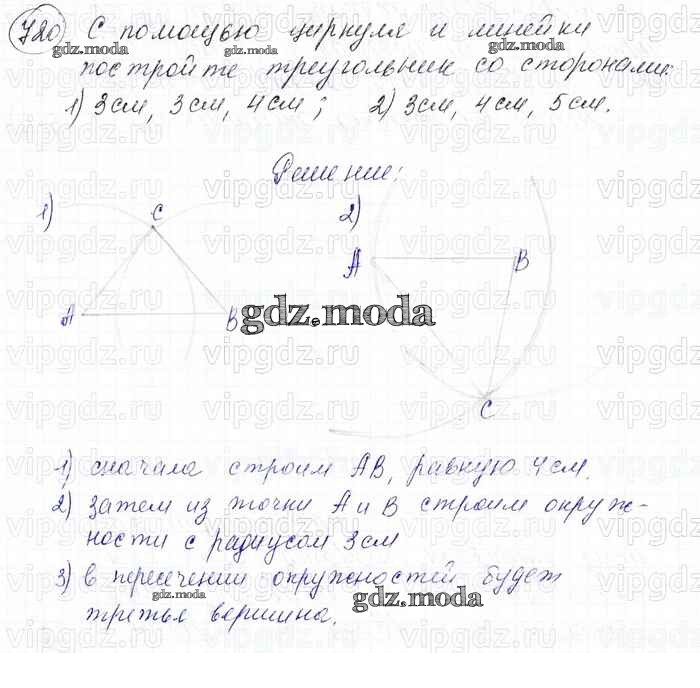 720 С помощью циркуля и линейки
постройте треугольник со сторонами:
1) 3см, 3см, 4см; 2) 3см, 4см, 5см.
Решение:
1)
C
A
B
2)
A
B
C
gdz.moda
1) сначала строим AB, равную 4см.
2) затем из точки A и B строим окруж-
ности с радиусом 3см
3) в пересечении окружностей будет
третья вершина.
gdz.moda
gdz.moda
gdz.moda
gdz.moda
gdz.moda
vipgdz.ru